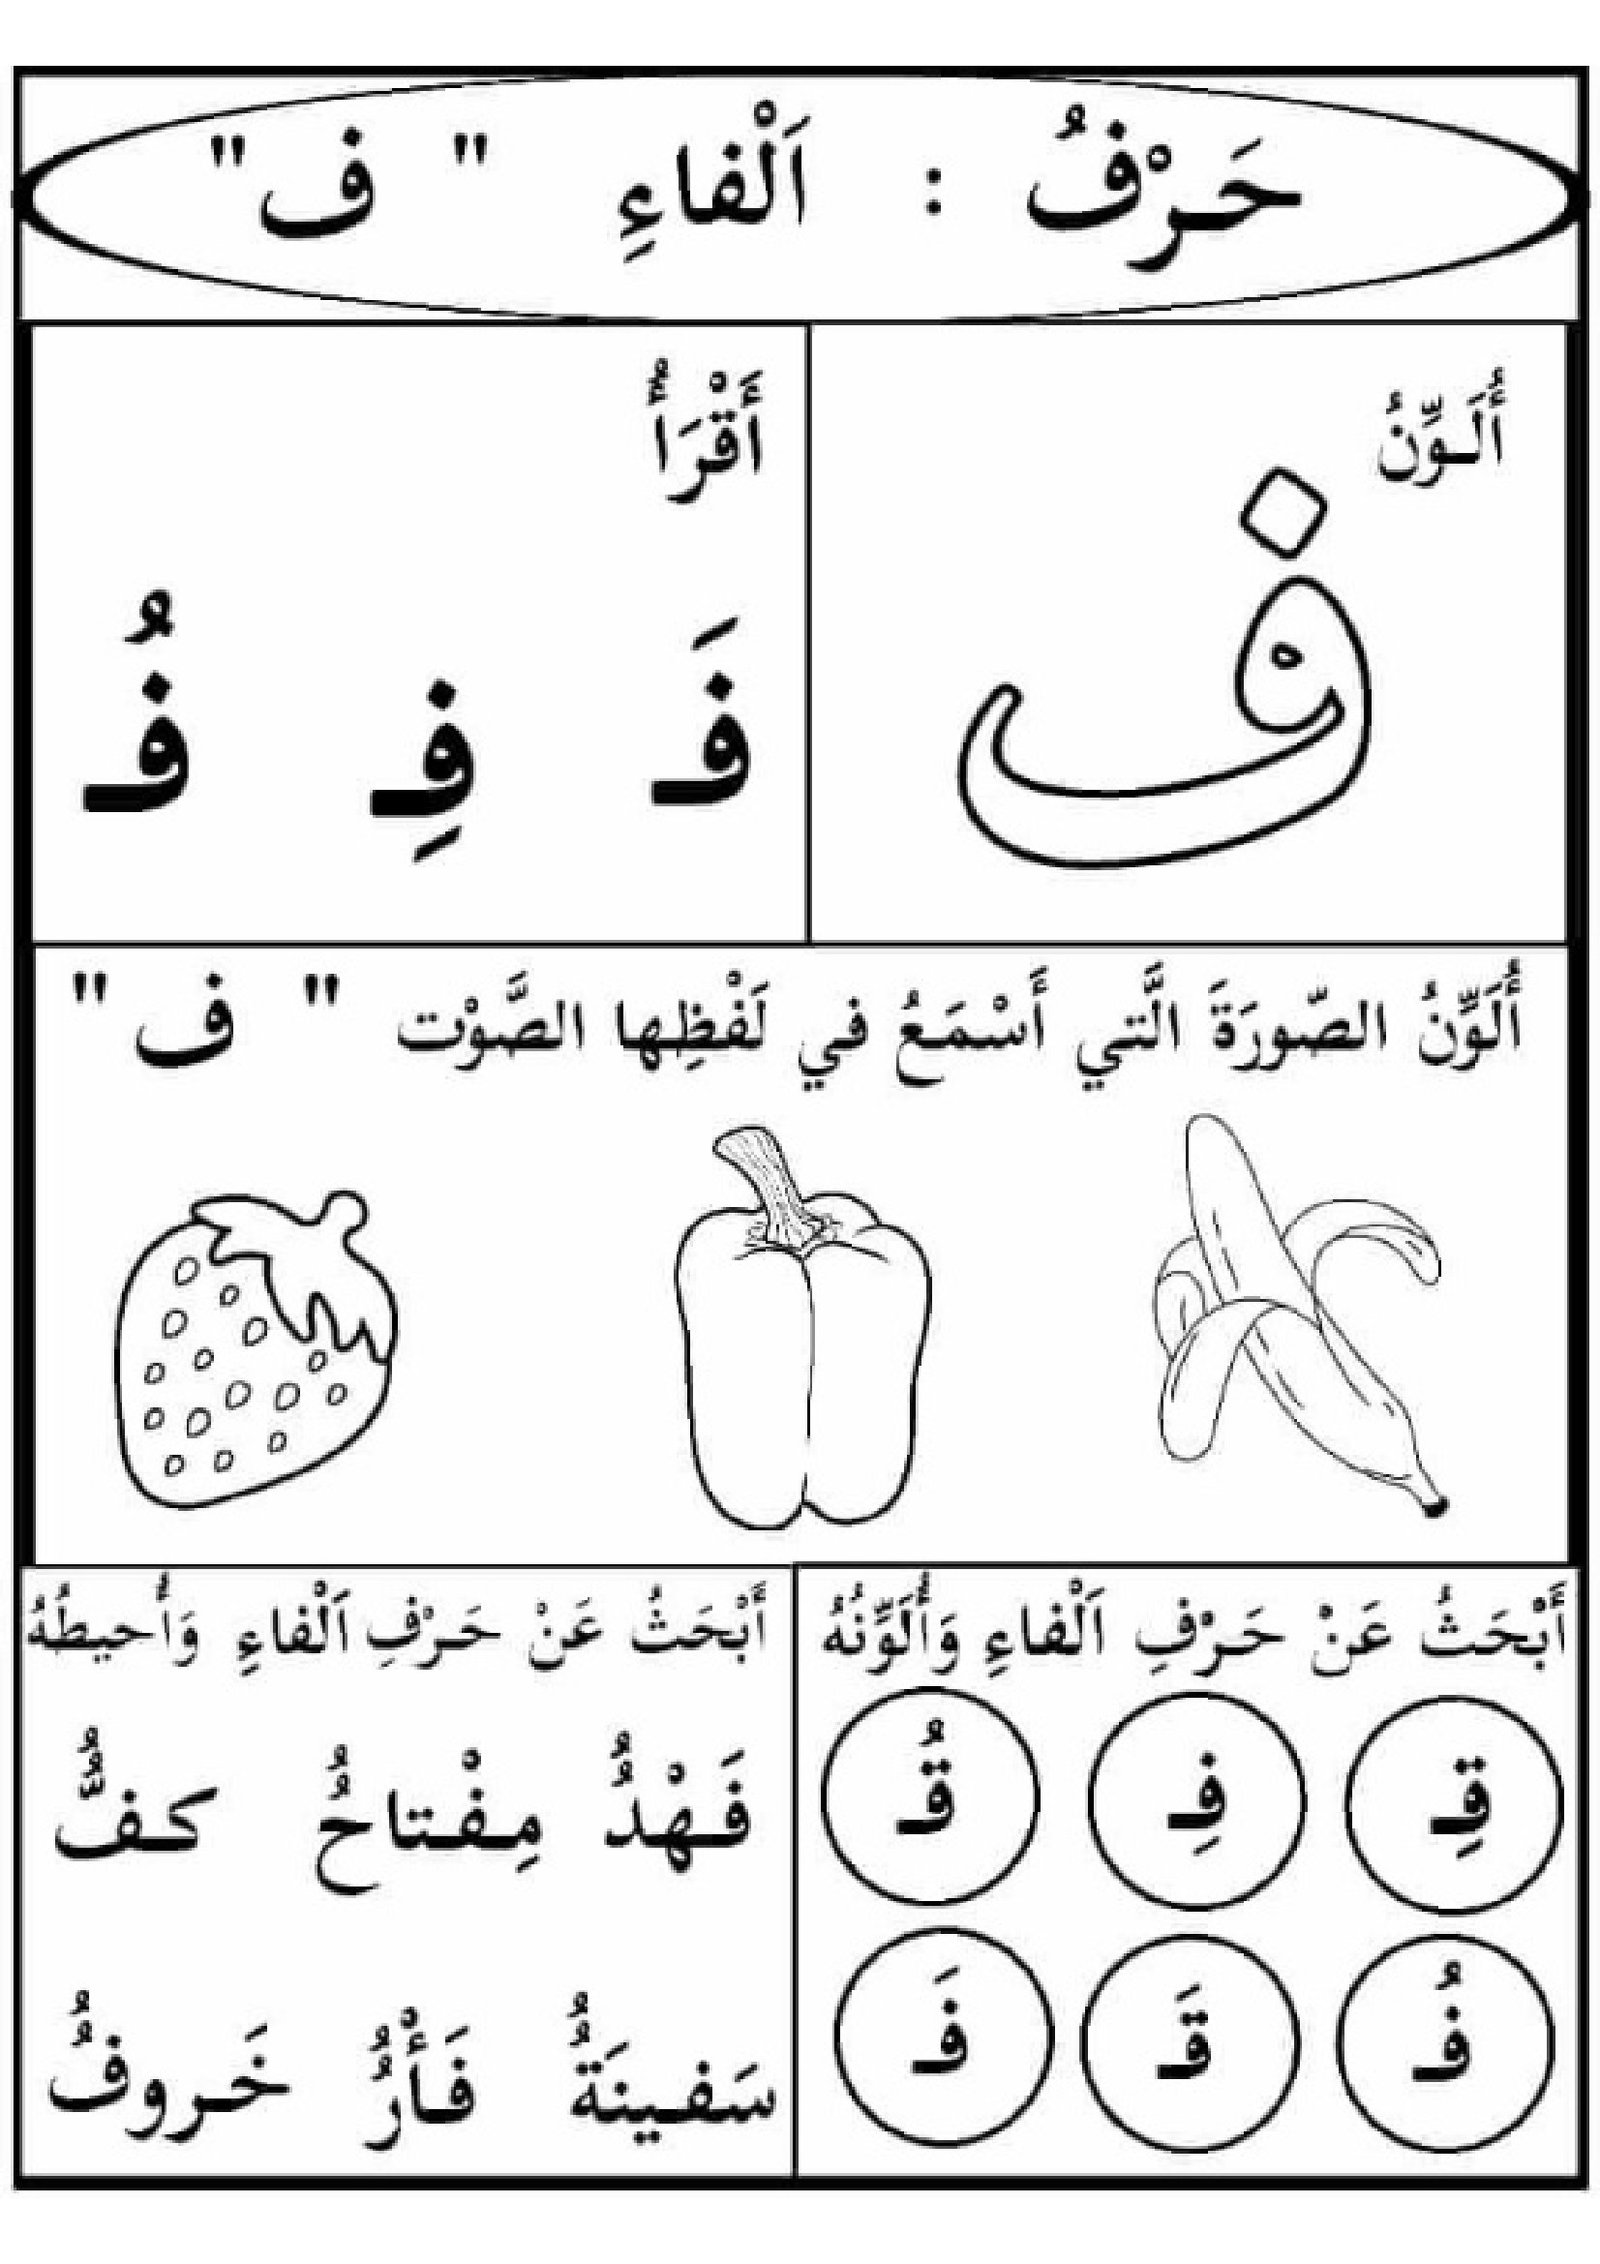 حَرْفُ : اَلْفاءِ " ف "
أُلَوِّنُ
فْ
أَقْرَأُ
فَـ فِـ فُـ
أُلَوِّنُ الصّورَةَ الَّتي أَسْمَعُ في لَفْظِها الصَّوْت " ف "
أَبْحَثُ عَنْ حَرْفِ اَلْفاءِ وَأُلَوِّنُهُ
قِـ فِـ قُـ
فُـ قَـ فَـ
أَبْحَثُ عَنْ حَرْفِ اَلْفاءِ وَأُحيطُهُ
فَـهْـدٌ مِـفْـتاحٌ كـفٌّ
سَـفـينَةٌ فَـأْرٌ خَـروفٌ